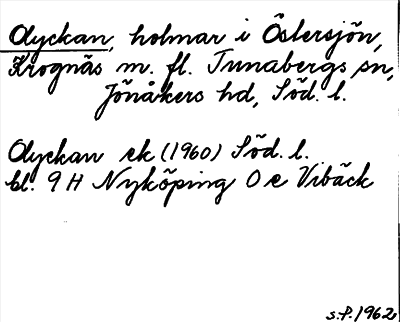 Olyckan, holmar i Östersjön,
Krognäs m. fl. Tunabergs sn,
Jönåkers hd, Söd. l.
Olyckan ek (1960) Söd. l.
bl. 9 H Nyköping O e Vibäck
s.f. 1962